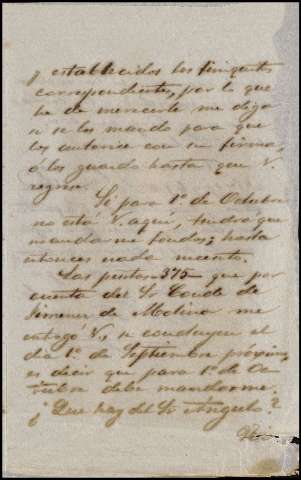 y establecidos los finiquitos
correspondientes, por lo que
he de merecerle me diga
si se los mando para que
los autorice con su firma,
ó los guardo hasta que V.
regrese.
Si para 1º de Octubre
no está V. aquí, tendrá que
mandarme fondos; hasta
entonces nada necesito.
Las pesetas 375 que por
cuenta del Sr Conde de
Jimenez de Molina me
entregó V, se concluyen el
día 1º de Septiembre próximo,
es decir que para 1º de Oc-
tubre debe mandarme.
¿Que hay del Sr Angulo?